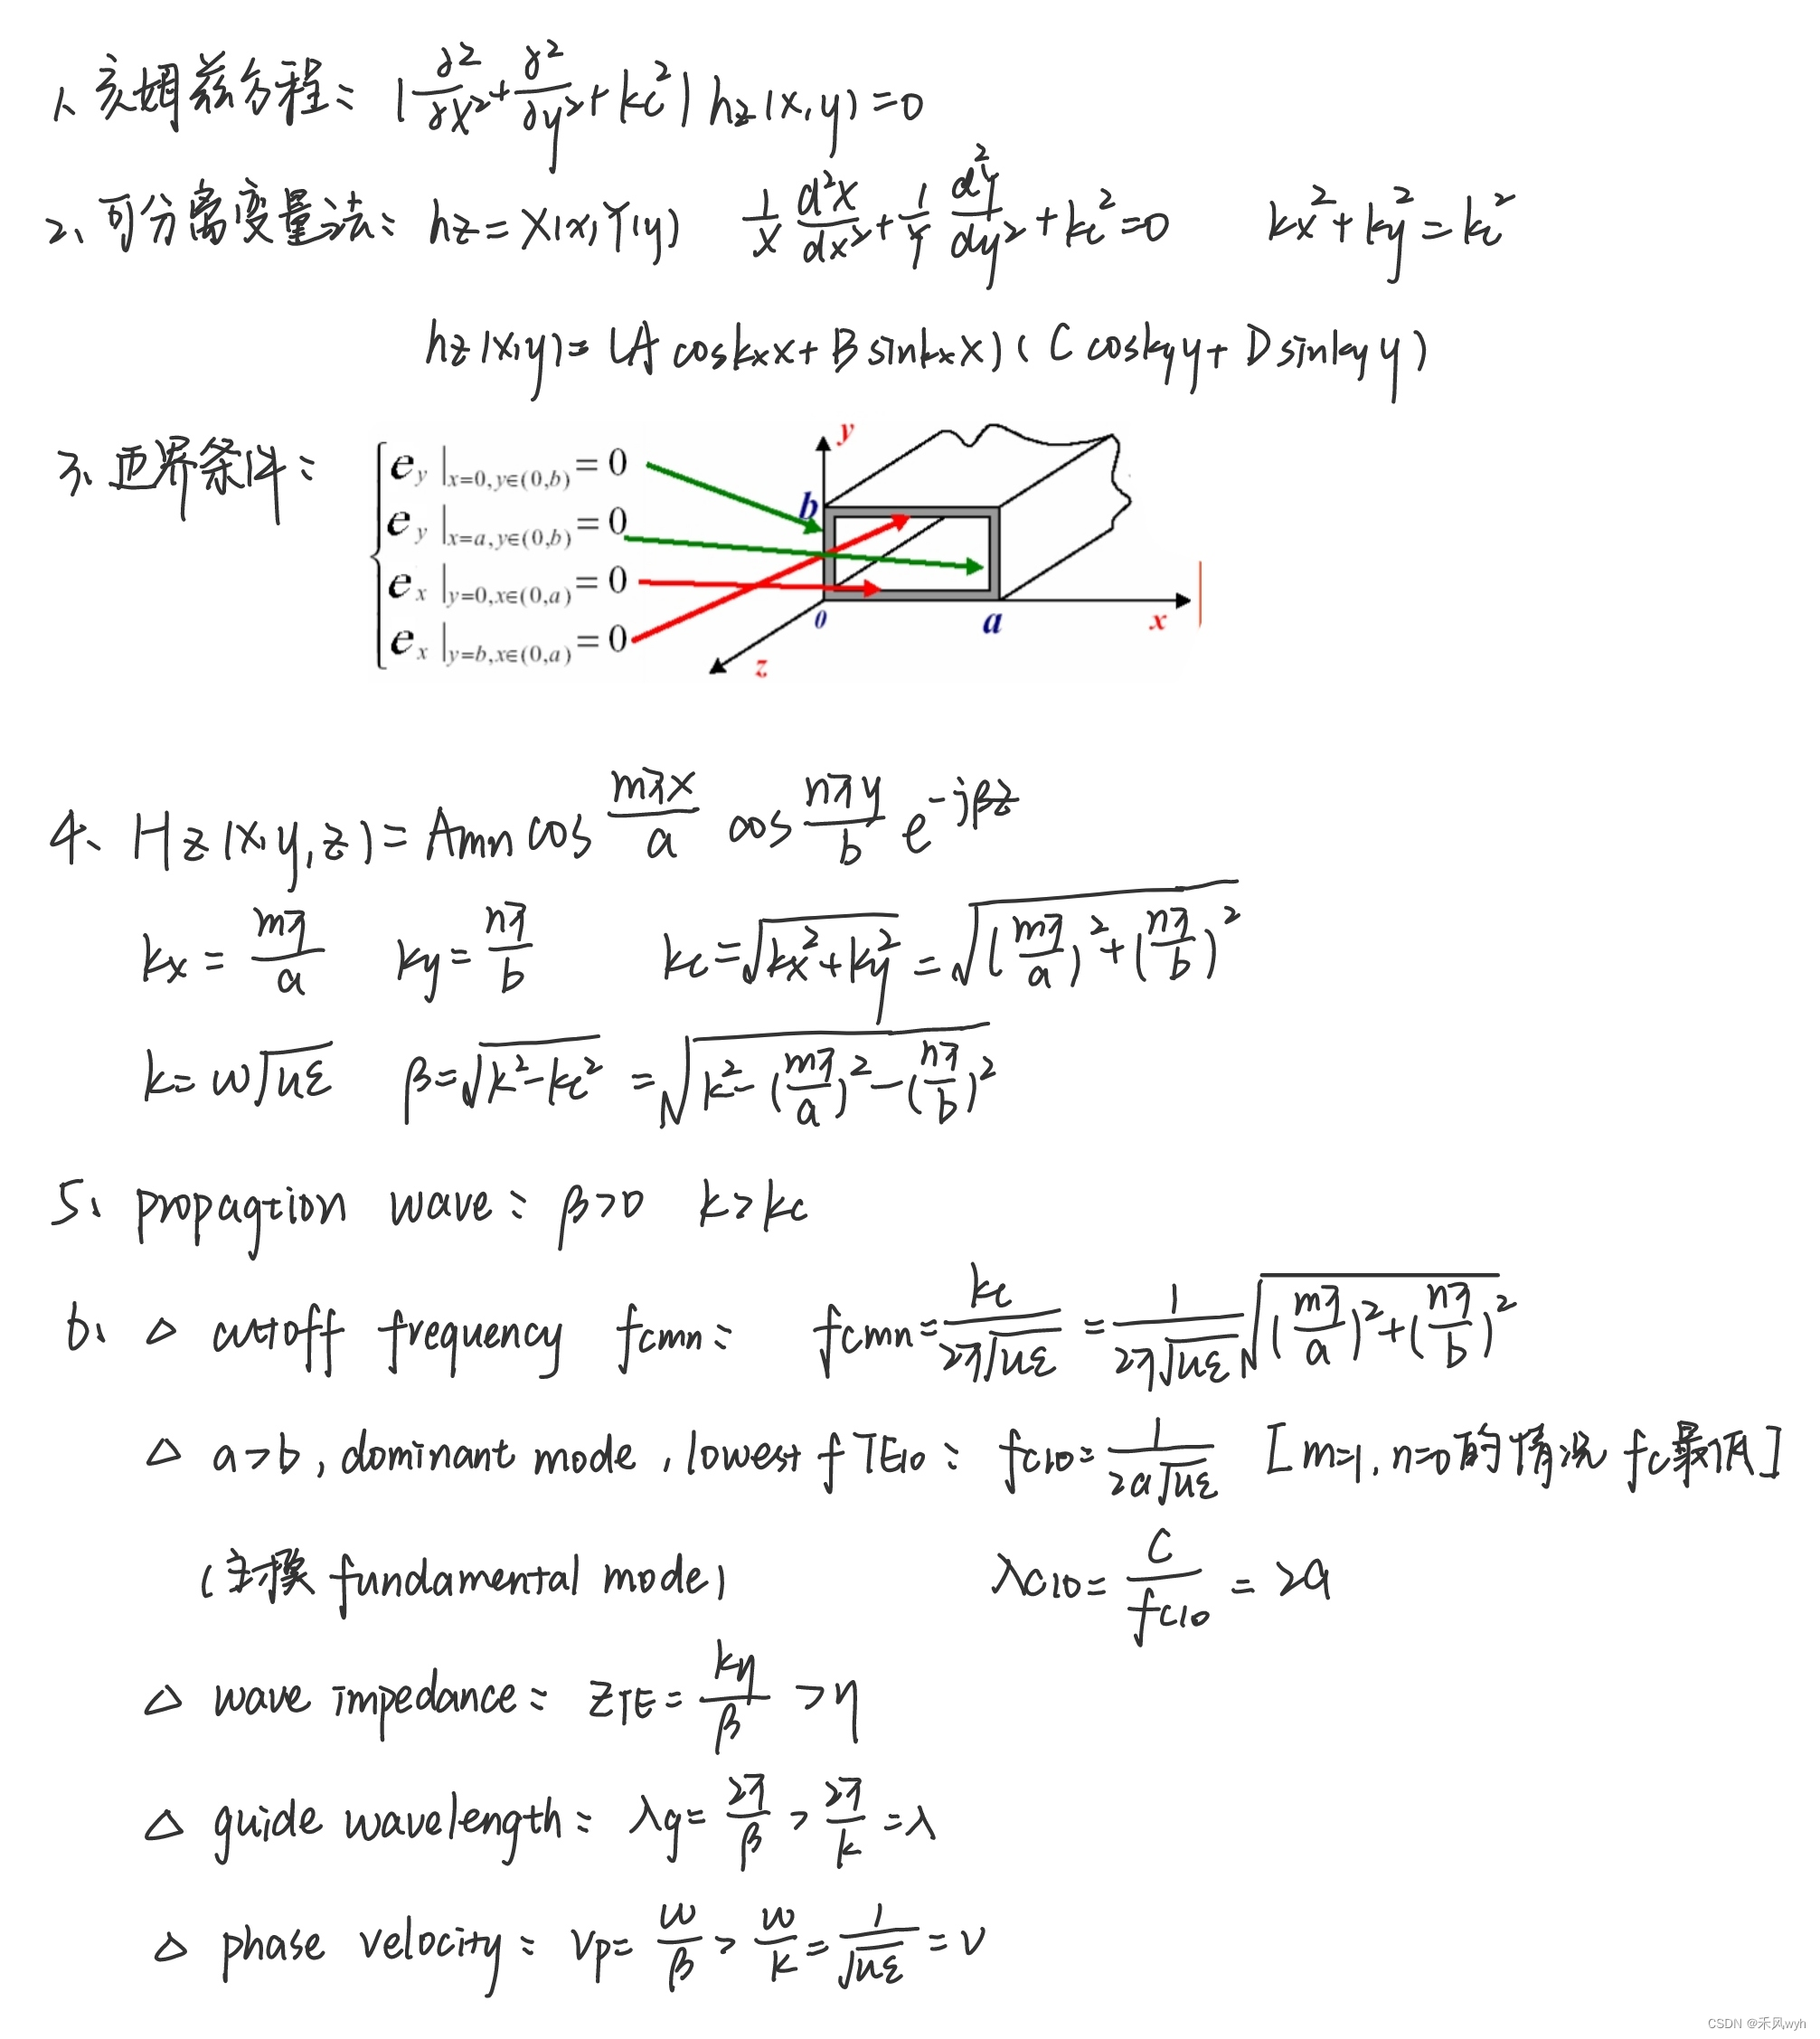 1、亥姆兹方程： (∂²/∂x² + ∂²/∂y² + kc²) hz(x,y)=0
2、可分离变量法： hz=X(x)Y(y) 1/X d²X/dx² + 1/Y d²Y/dy² + kc²=0 kx²+ky²=kc²
hz(x,y)=(A cos kx x + B sin kx x)(C cos ky y + D sin ky y)
3、边界条件：
e_y |x=0,y∈(0,b) = 0
e_y |x=a,y∈(0,b) = 0
e_x |y=0,x∈(0,a) = 0
e_x |y=b,x∈(0,a) = 0
y
b
0
a
x
z
4、Hz(x,y,z)=Amn cos mπx/a cos nπy/b e^-jβz
kx = mπ/a ky = nπ/b kc=√(kx²+ky²) = √((mπ/a)²+(nπ/b)²)
k=w√uε β=√(k²-kc²) = √(k²-(mπ/a)²-(nπ/b)²)
5、propagtion wave： β>0 k>kc
6、△ cutoff frequency fcmn： fcmn= kc/2π√uε = 1/2π√uε √((mπ/a)²+(nπ/b)²)
△ a>b, dominant mode, lowest f TE10： fc10= 1/2a√uε [m=1, n=0的情况 fc最低]
(主模 fundamental mode) λc10= c/fc10 = 2a
△ wave impedance： ZTE= kη/β >η
△ guide wavelength： λg= 2π/β > 2π/k =λ
△ phase velocity： vp= w/β > w/k = 1/√uε = v
CSDN @禾风wyh